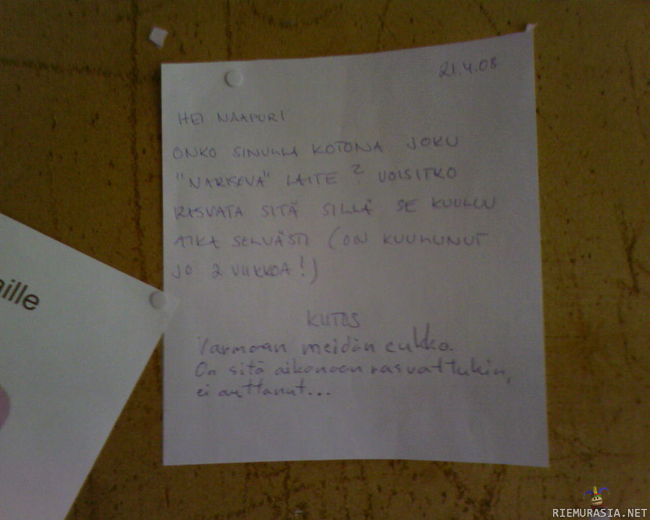 21.4.08
HEI NAAPURI
ONKO SINULLA KOTONA JOKU
"NARISEVA" LAITE? VOISITKO
RASVATA SITÄ SILLÄ SE KUULUU
AIKA SELVÄSTI (ON KUULUNUT
JO 2 VIIKKOA!)
KIITOS
Varmaan meidän eukko.
On sitä aikanaan rasvattukin,
ei auttanut...
aille
RIEMURASIA.NET